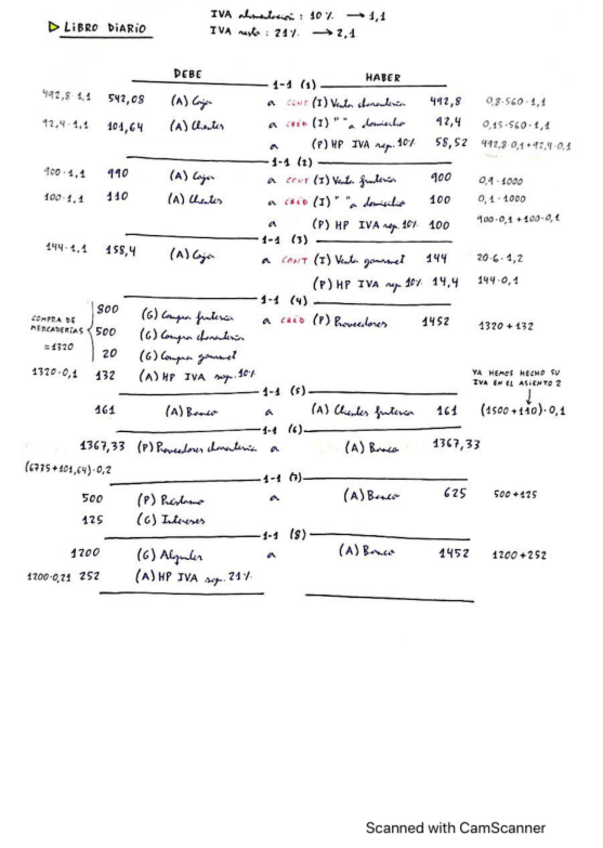 IVA alimentación: 10% → 1,1
▷ LIBRO DIARIO IVA resto: 21% → 2,1
DEBE HABER
1-1 (1)
492,8·1,1 542,08 (A) Caja a CONT (I) Venta charcutería 492,8 0,8·560·1,1
92,4·1,1 101,64 (A) Clientes a CRÉD (I) " " a domicilio 92,4 0,15·560·1,1
a (P) HP IVA rep. 10% 58,52 492,8·0,1+92,4·0,1
1-1 (2)
900·1,1 990 (A) Caja a CONT (I) Venta frutería 900 0,9·1000
100·1,1 110 (A) Clientes a CRÉD (I) " " a domicilio 100 0,1·1000
a (P) HP IVA rep. 10% 100 900·0,1+100·0,1
1-1 (3)
144·1,1 158,4 (A) Caja a CONT (I) Venta gourmet 144 20·6·1,2
(P) HP IVA rep. 10% 14,4 144·0,1
1-1 (4)
COMPRA DE MERCADERÍAS =1320
800 (G) Compra frutería a CRÉD (P) Proveedores 1452 1320+132
500 (G) Compra charcutería
20 (G) Compra gourmet
1320·0,1 132 (A) HP IVA sop. 10%
YA HEMOS HECHO SU
IVA EN EL ASIENTO 2
1-1 (5)
161 (A) Banco a (A) Clientes frutería 161 (1500+110)·0,1
1-1 (6)
1367,33 (P) Proveedores charcutería a (A) Banco 1367,33
(6735+101,64)·0,2
1-1 (7)
500 (P) Préstamo a (A) Banco 625 500+125
125 (G) Intereses
1-1 (8)
1200 (G) Alquiler a (A) Banco 1452 1200+252
1200·0,21 252 (A) HP IVA sop. 21%
Scanned with CamScanner